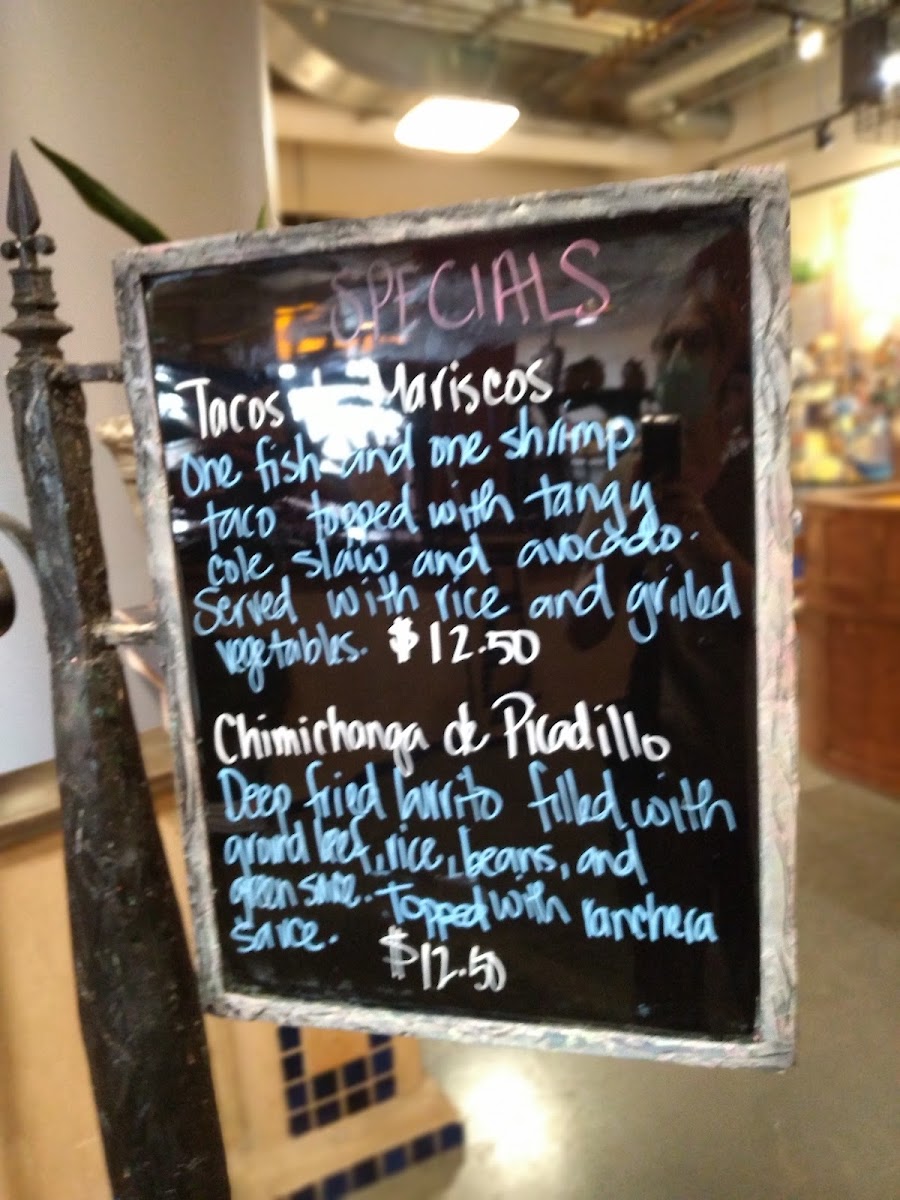 SPECIALS
Tacos de Mariscos
One fish and one shrimp
taco topped with tangy
cole slaw and avocado.
Served with rice and grilled
vegetables. $12.50
Chimichanga de Picadillo
Deep fried burrito filled with
ground beef, rice, beans, and
green sauce. Topped with ranchera
sauce.
$12.50